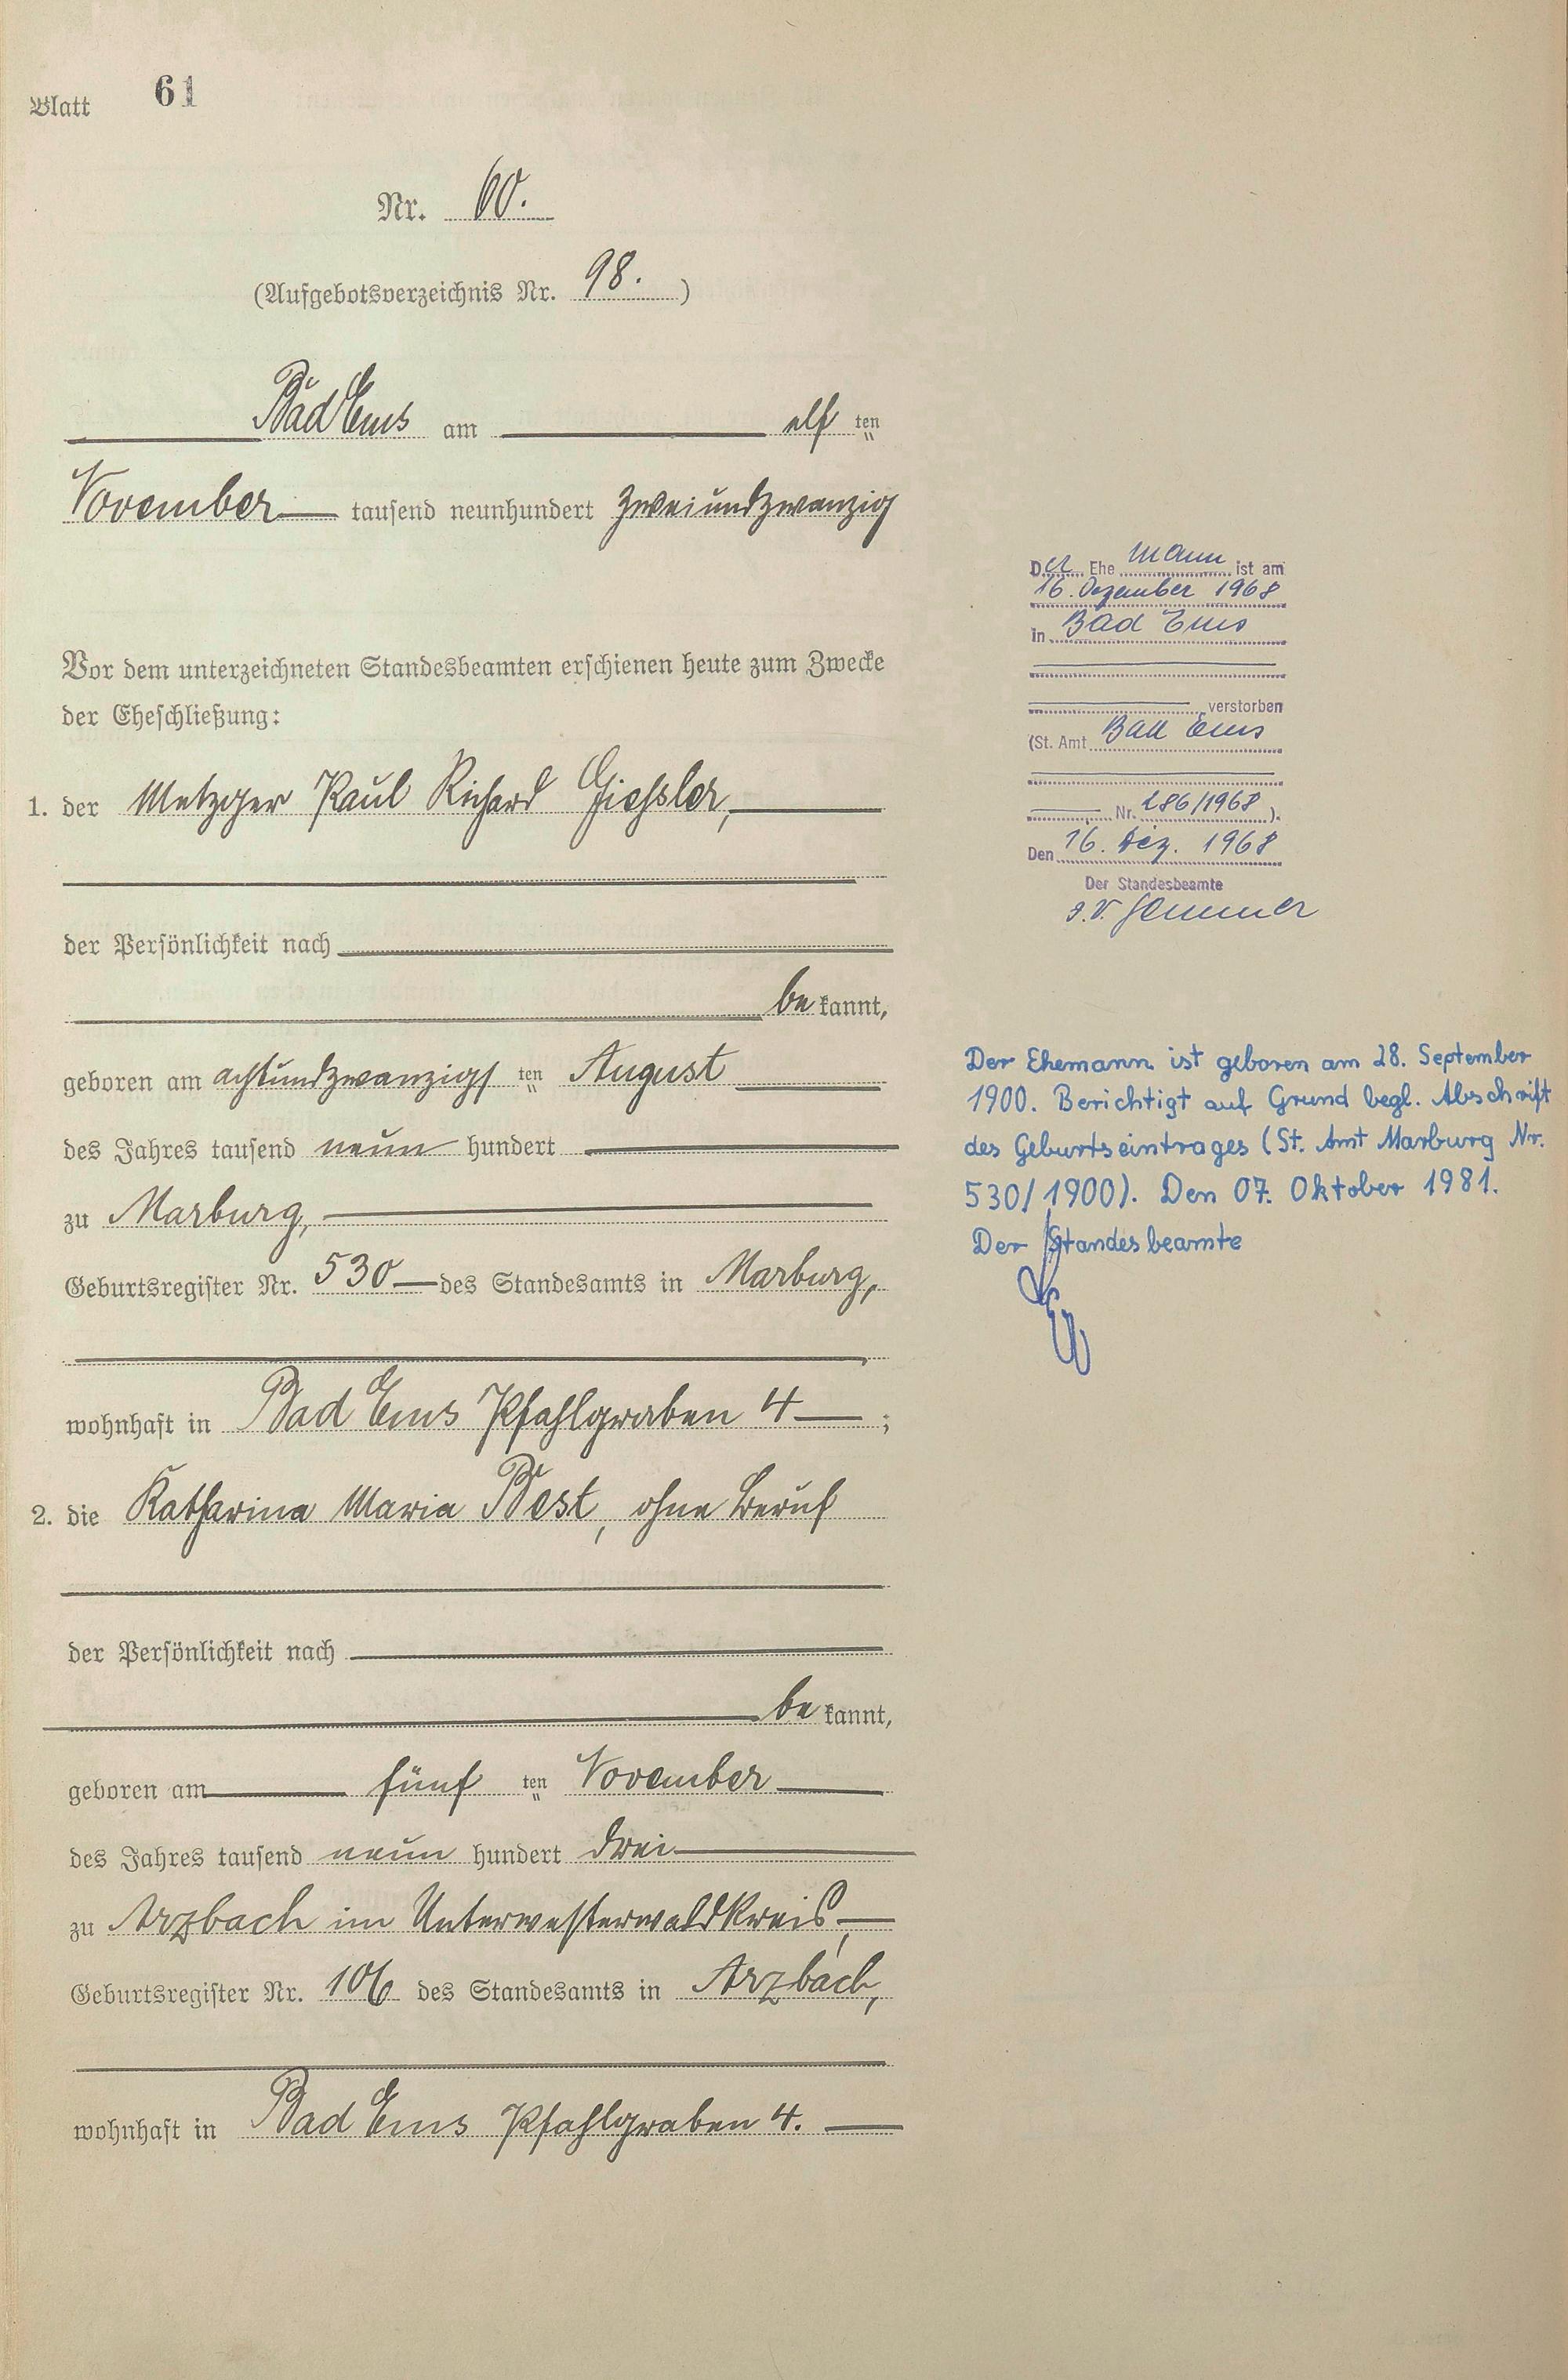 Blatt 61
Nr. 60.
(Aufgebotsverzeichnis Nr. 98.)
Bad Ems am elf ten
November tausend neunhundert zweiundzwanzig
Vor dem unterzeichneten Standesbeamten erschienen heute zum Zwecke
der Eheschließung:
1. der Metzger Paul Richard Giessler,
der Persönlichkeit nach
be kannt,
geboren am achtundzwanzigs ten August
des Jahres tausend neun hundert
zu Marburg,
Geburtsregister Nr. 530 des Standesamts in Marburg,
wohnhaft in Bad Ems Pfahlgraben 4 ;
2. die Katharina Maria Best, ohne Beruf
der Persönlichkeit nach
be kannt,
geboren am fünf ten November
des Jahres tausend neun hundert drei
zu Arzbach im Unterwesterwaldkreis,
Geburtsregister Nr. 106 des Standesamts in Arzbach,
wohnhaft in Bad Ems Pfahlgraben 4.
Der Ehe mann ist am
16. Dezember 1968
in Bad Ems
verstorben
(St. Amt Bad Ems
Nr. 286/1968 ).
Den 16. Dez. 1968
Der Standesbeamte
Der Ehemann ist geboren am 28. September
1900. Berichtigt auf Grund begl. Abschrift
des Geburtseintrages (St. Amt Marburg Nr.
530/1900). Den 07. Oktober 1981.
Der Standesbeamte